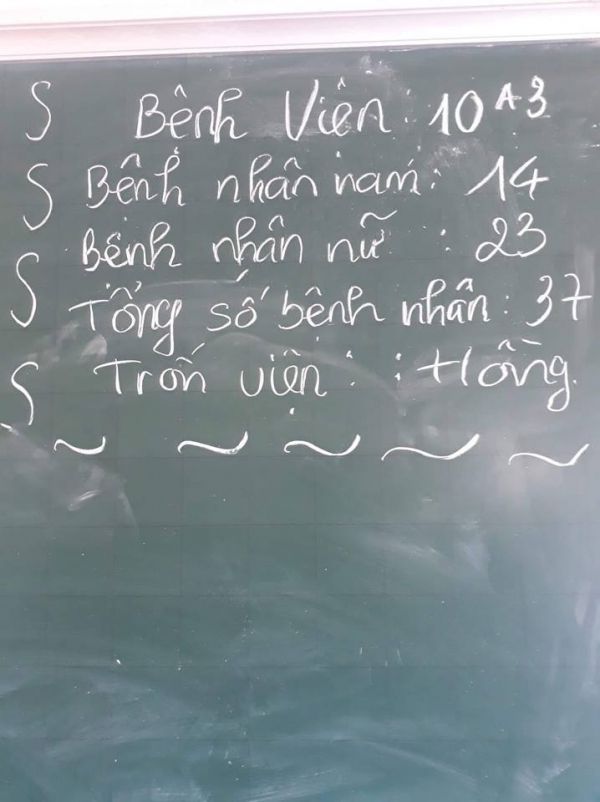 Bệnh Viện: 10A3
Bệnh nhân nam: 14
Bệnh nhân nữ : 23
Tổng số bệnh nhân: 37
Trốn viện : : Hổng.